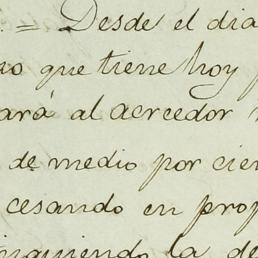 = Desde el dia
que tiene hoy
ará al acreedor
de medio por cien
cesando en prop
la de